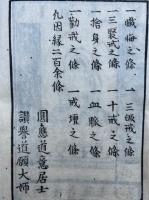 一懺悔之條　一三皈戒之條
一三聚戒之條　一十戒之條
一捨身之條　一血脈之條
一勸戒之條　一戒壇之條
凡因縁二百余條
圓應道意居士
讃譽道願大姉